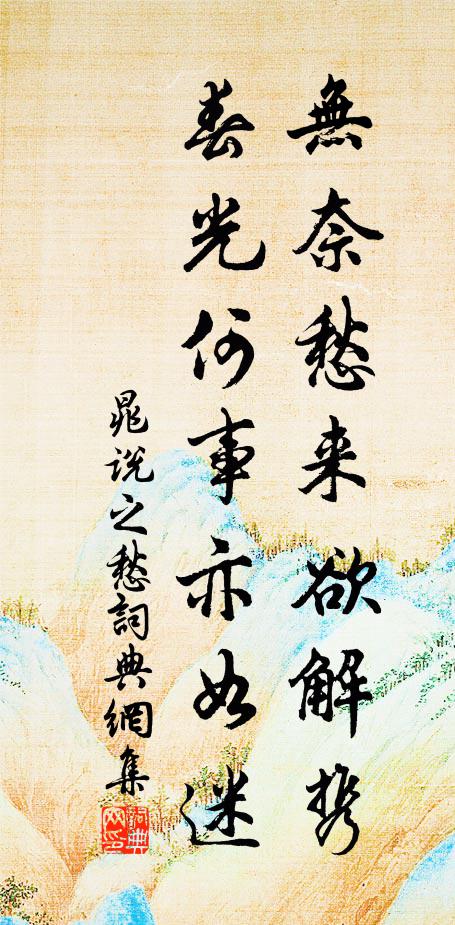 無奈愁来欲解携
春光何事亦如迷
晁说之愁詞典網集
詞典網印